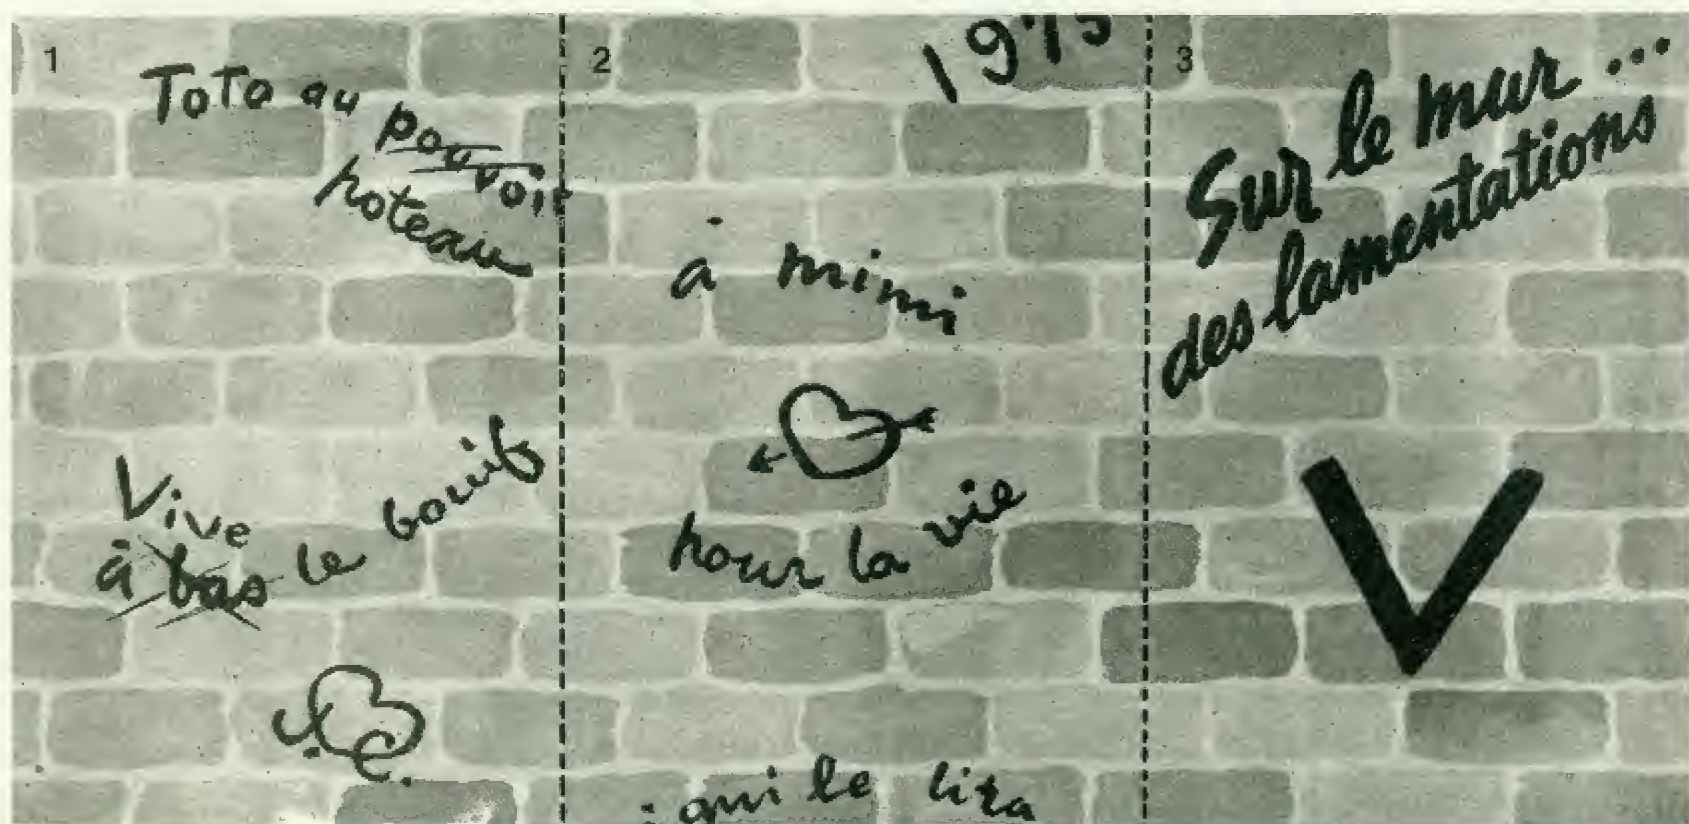 1
Toto au
pouvoir
poteau
Vive
à bas le bouif
2
1975
à mimi
pour la vie
qui le lira
3
Sur le mur...
des lamentations
V